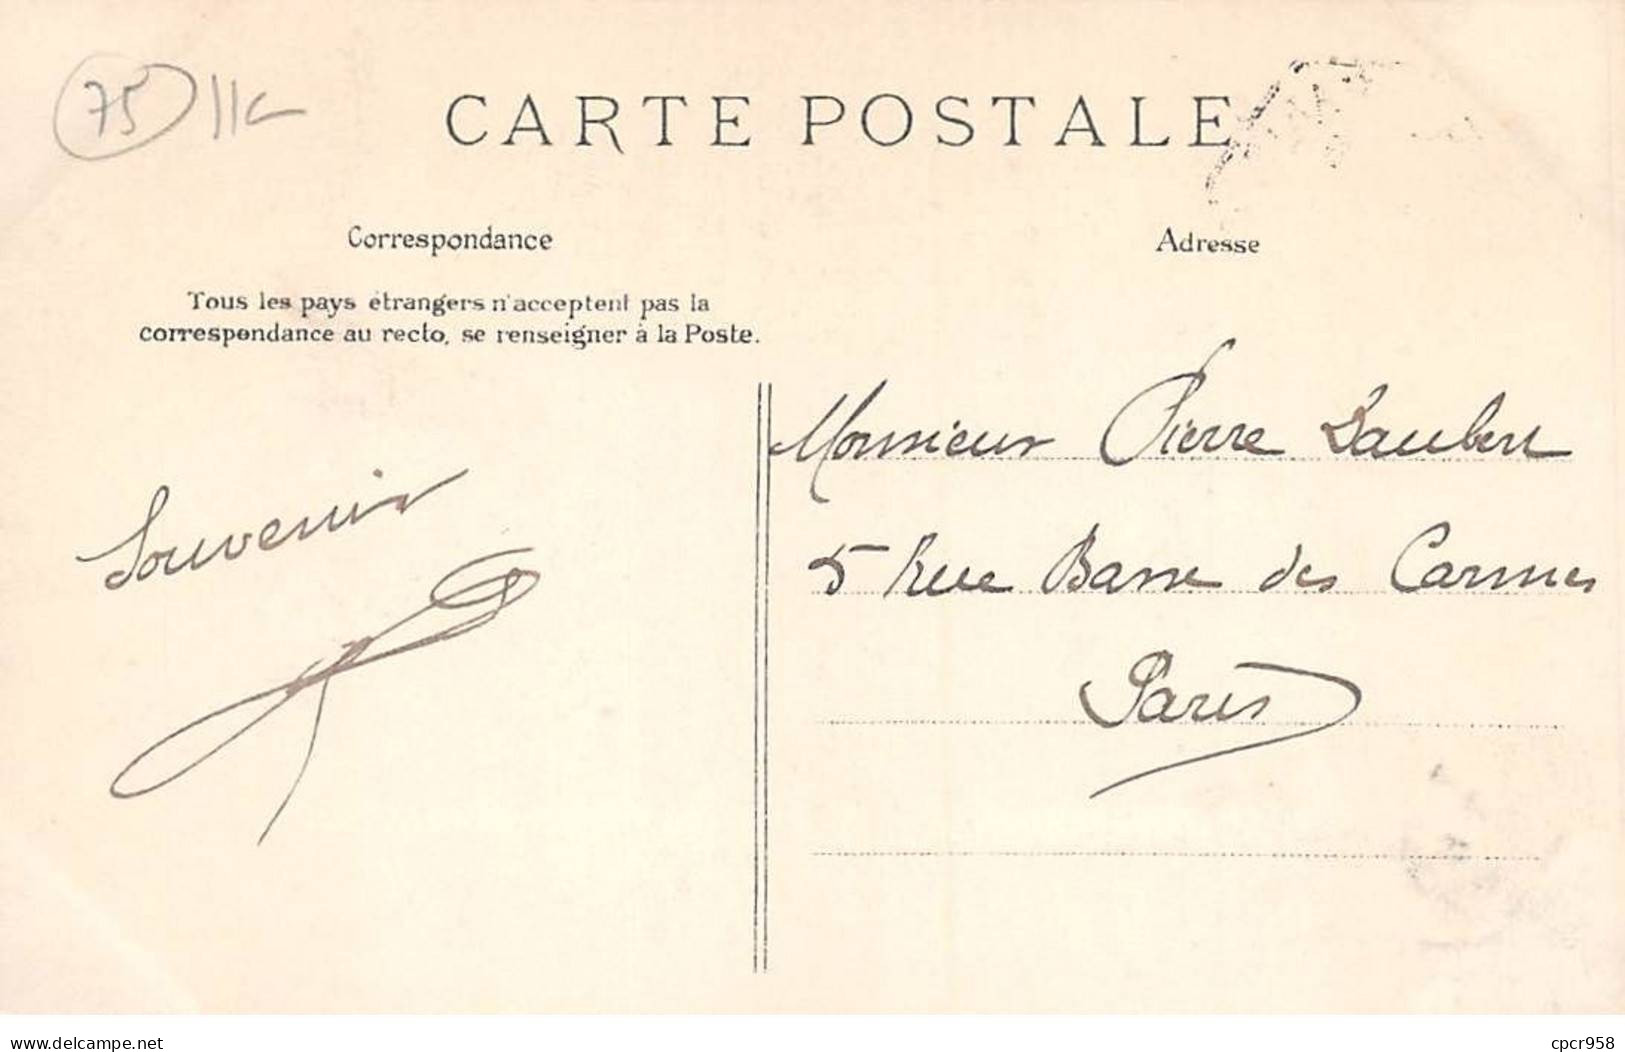 75 11c
CARTE POSTALE
Correspondance
Adresse
Tous les pays étrangers n'acceptent pas la
correspondance au recto, se renseigner à la Poste.
Souvenir
Monsieur Pierre Daubert
5 Rue Basse des Carmes
Paris
www.delcampe.net
cpcr958